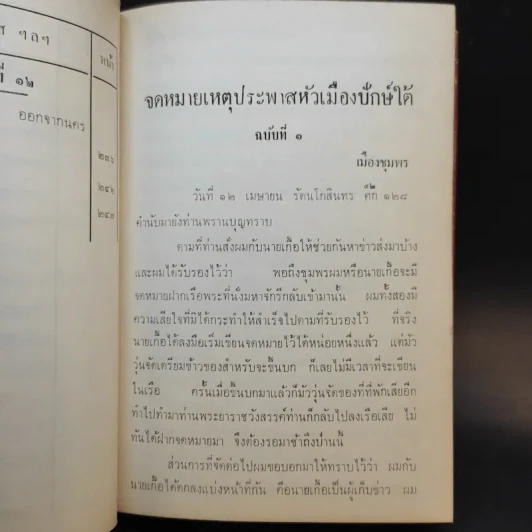 ส ฯลฯ
ที่ ๑๒
หน้า
ออกจากนคร
๒๓๖
๒๔๒
๒๔๗
จดหมายเหตุประพาสหัวเมืองปักษ์ใต้
ฉบับที่ ๑
เมืองชุมพร
วันที่ ๑๒ เมษายน รัตนโกสินทร ศ๊ก ๑๒๘
คำนับมายังท่านพรานบุญทราบ
ตามที่ท่านสั่งผมกับนายเกื้อให้ช่วยกันหาข่าวส่งมาบ้าง
และผมได้รับรองไว้ว่า พอถึงชุมพรผมหรือนายเกื้อจะมี
จดหมายฝากเรือพระที่นั่งมหาจักรีกลับเข้ามานั้น ผมทั้งสองมี
ความเสียใจที่มิได้กระทำให้สำเร็จไปตามที่รับรองไว้ ที่จริง
นายเกื้อได้ลงมือเริ่มเขียนจดหมายไว้ได้หน่อยหนึ่งแล้ว แต่มัว
วุ่นจัดเตรียมข้าวของสำหรับจะขึ้นบก ก็เลยไม่มีเวลาที่จะเขียน
ในเรือ ครั้นเมื่อขึ้นบกมาแล้วก็มัววุ่นจัดของที่ที่พักเสียอีก
ทำไปทำมาท่านพระยาราชวังสรรค์ท่านก็กลับไปลงเรือเสีย ไม่
ทันได้ฝากจดหมายมา จึงต้องรอมาช้าถึงป่านนี้
ส่วนการที่จัดต่อไปผมขอบอกมาให้ทราบไว้ว่า ผมกับ
นายเกื้อได้ตกลงแบ่งหน้าที่กัน คือนายเกื้อเป็นผู้เก็บข่าว ผม